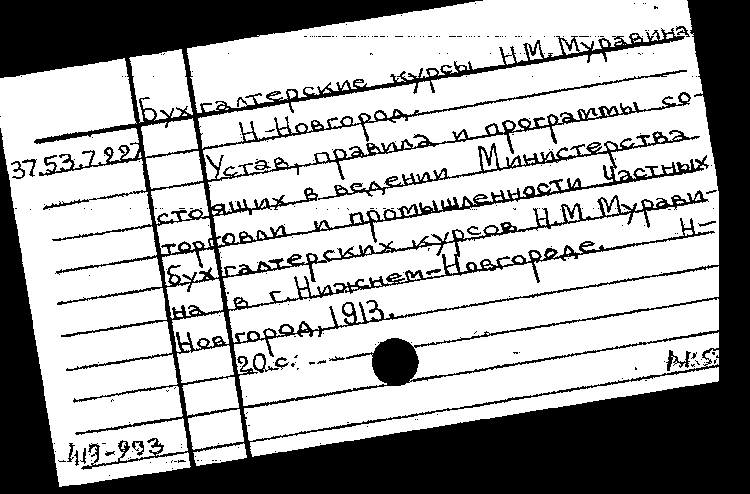 Бухгалтерские курсы Н.М. Муравина
Н.-Новгород.
37.53.7.227
Устав, правила и программы со-
стоящих в ведении Министерства
торговли и промышленности частных
бухгалтерских курсов Н.М. Мурави-
на в г. Нижнем-Новгороде. Н-
Новгород, 1913.
20 с.
419-993